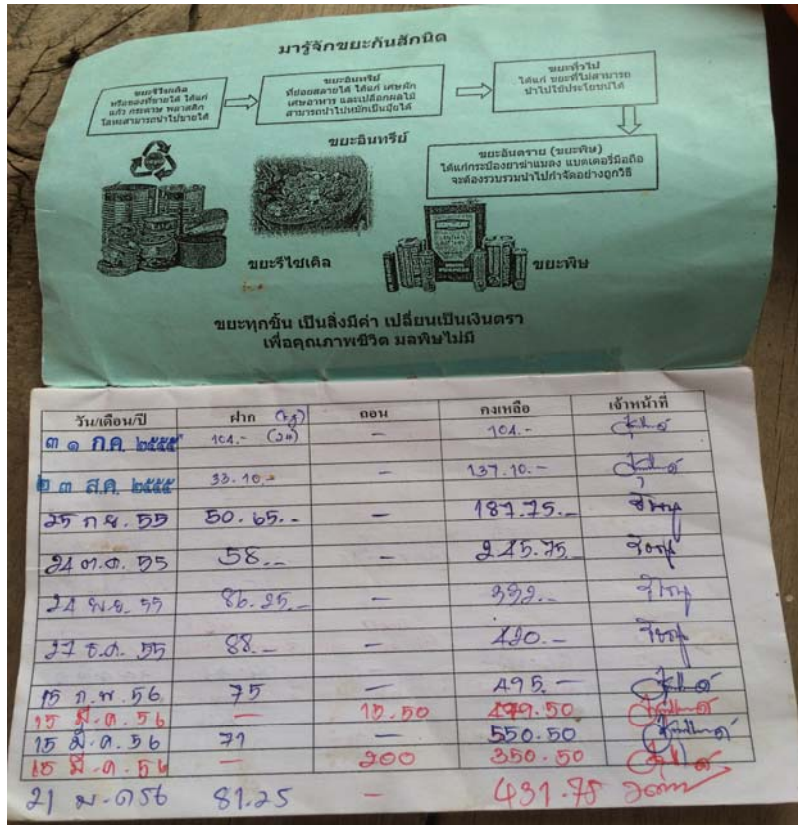 มารู้จักขยะกันสักนิด
ขยะรีไซเคิล
หรือของที่ขายได้ ได้แก่
แก้ว กระดาษ พลาสติก
โลหะสามารถนำไปขายได้
ขยะอินทรีย์
ที่ย่อยสลายได้ ได้แก่ เศษผัก
เศษอาหาร และเปลือกผลไม้
สามารถนำไปหมักเป็นปุ๋ยได้
ขยะทั่วไป
ได้แก่ ขยะที่ไม่สามารถ
นำไปใช้ประโยชน์ได้
ขยะอินทรีย์
ขยะอันตราย (ขยะพิษ)
ได้แก่กระป๋องยาฆ่าแมลง แบตเตอรี่มือถือ
จะต้องรวบรวมนำไปกำจัดอย่างถูกวิธี
ขยะรีไซเคิล
ขยะพิษ
ขยะทุกชิ้น เป็นสิ่งมีค่า เปลี่ยนเป็นเงินตรา
เพื่อคุณภาพชีวิต มลพิษไม่มี
วัน/เดือน/ปี ฝาก ถอน คงเหลือ เจ้าหน้าที่
๓ ๑ ก.ค. ๒๕๕๕ 104.- – 104.-
๒ ๓ ส.ค. ๒๕๕๕ 33.10.- – 137.10.-
25 ก.ย. 55 50.65.- – 187.75.-
24 ต.ค. 55 58.- – 245.75.-
24 พ.ย. 55 86.25.- – 332.-
27 ธ.ค. 55 88.- – 420.-
15 ก.พ. 56 75 – 495.-
15 มี.ค. 56 – 15.50 479.50
15 มี.ค. 56 71 – 550.50
15 มี.ค. 56 – 200 350.50
21 81.25 – 431.75